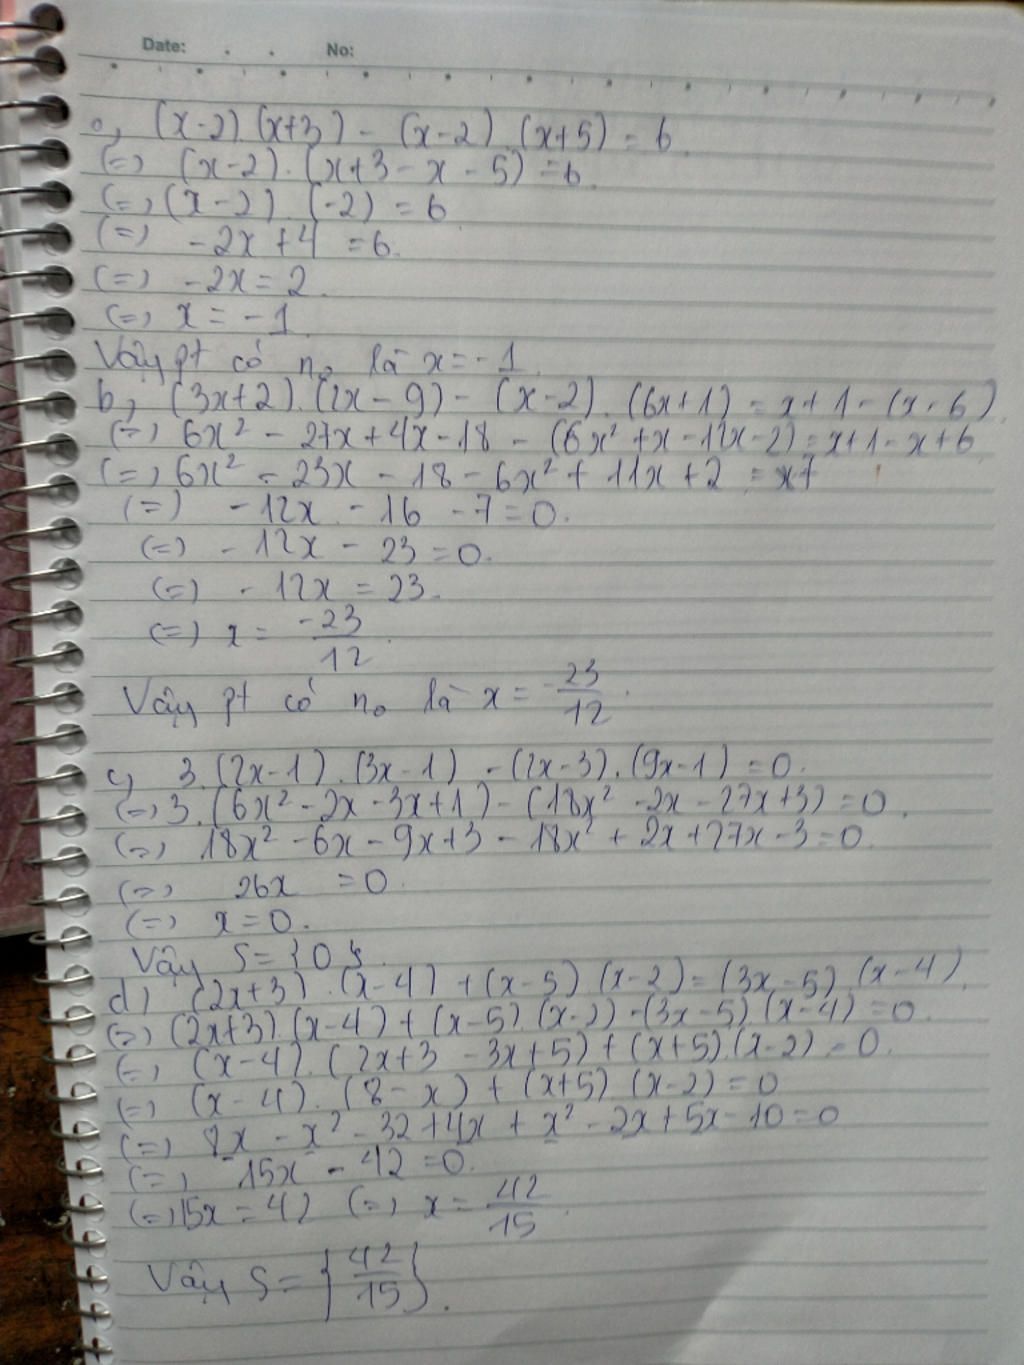 Date: No:
a, (x-2).(x+3) - (x-2).(x+5) = 6.
(=) (x-2).(x+3-x-5) = 6.
(=) (x-2).(-2) = 6
(=) -2x+4 = 6.
(=) -2x = 2.
(=) x = -1.
Vậy pt có no là x = -1.
b, (3x+2).(2x-9) - (x-2).(6x+1) = x+1-(x-6).
(=) 6x² - 27x+4x-18 - (6x²+x-12x-2) = x+1-x+6
(=) 6x² - 23x - 18 - 6x² + 11x + 2 = x7
(=) -12x - 16 - 7 = 0.
(=) -12x - 23 = 0.
(=) -12x = 23.
(=) x = -23/12.
Vậy pt có no là x = -23/12.
c, 3.(2x-1).(3x-1) - (2x-3).(9x-1) = 0.
(=) 3.(6x²-2x-3x+1) - (18x²-2x-27x+3) = 0.
(=) 18x²-6x-9x+3-18x²+2x+27x-3 = 0.
(=) 26x = 0.
(=) x = 0.
Vậy S = {0}.
d) (2x+3).(x-4) + (x-5).(x-2) = (3x-5).(x-4).
(=) (2x+3).(x-4) + (x-5).(x-2) - (3x-5).(x-4) = 0.
(=) (x-4).(2x+3-3x+5) + (x+5).(x-2) = 0.
(=) (x-4).(8-x) + (x+5).(x-2) = 0
(=) 8x - x² - 32 + 4x + x² - 2x + 5x - 10 = 0
(=) 15x - 42 = 0.
(=) 15x = 42 (=) x = 42/15.
Vậy S = {42/15}.